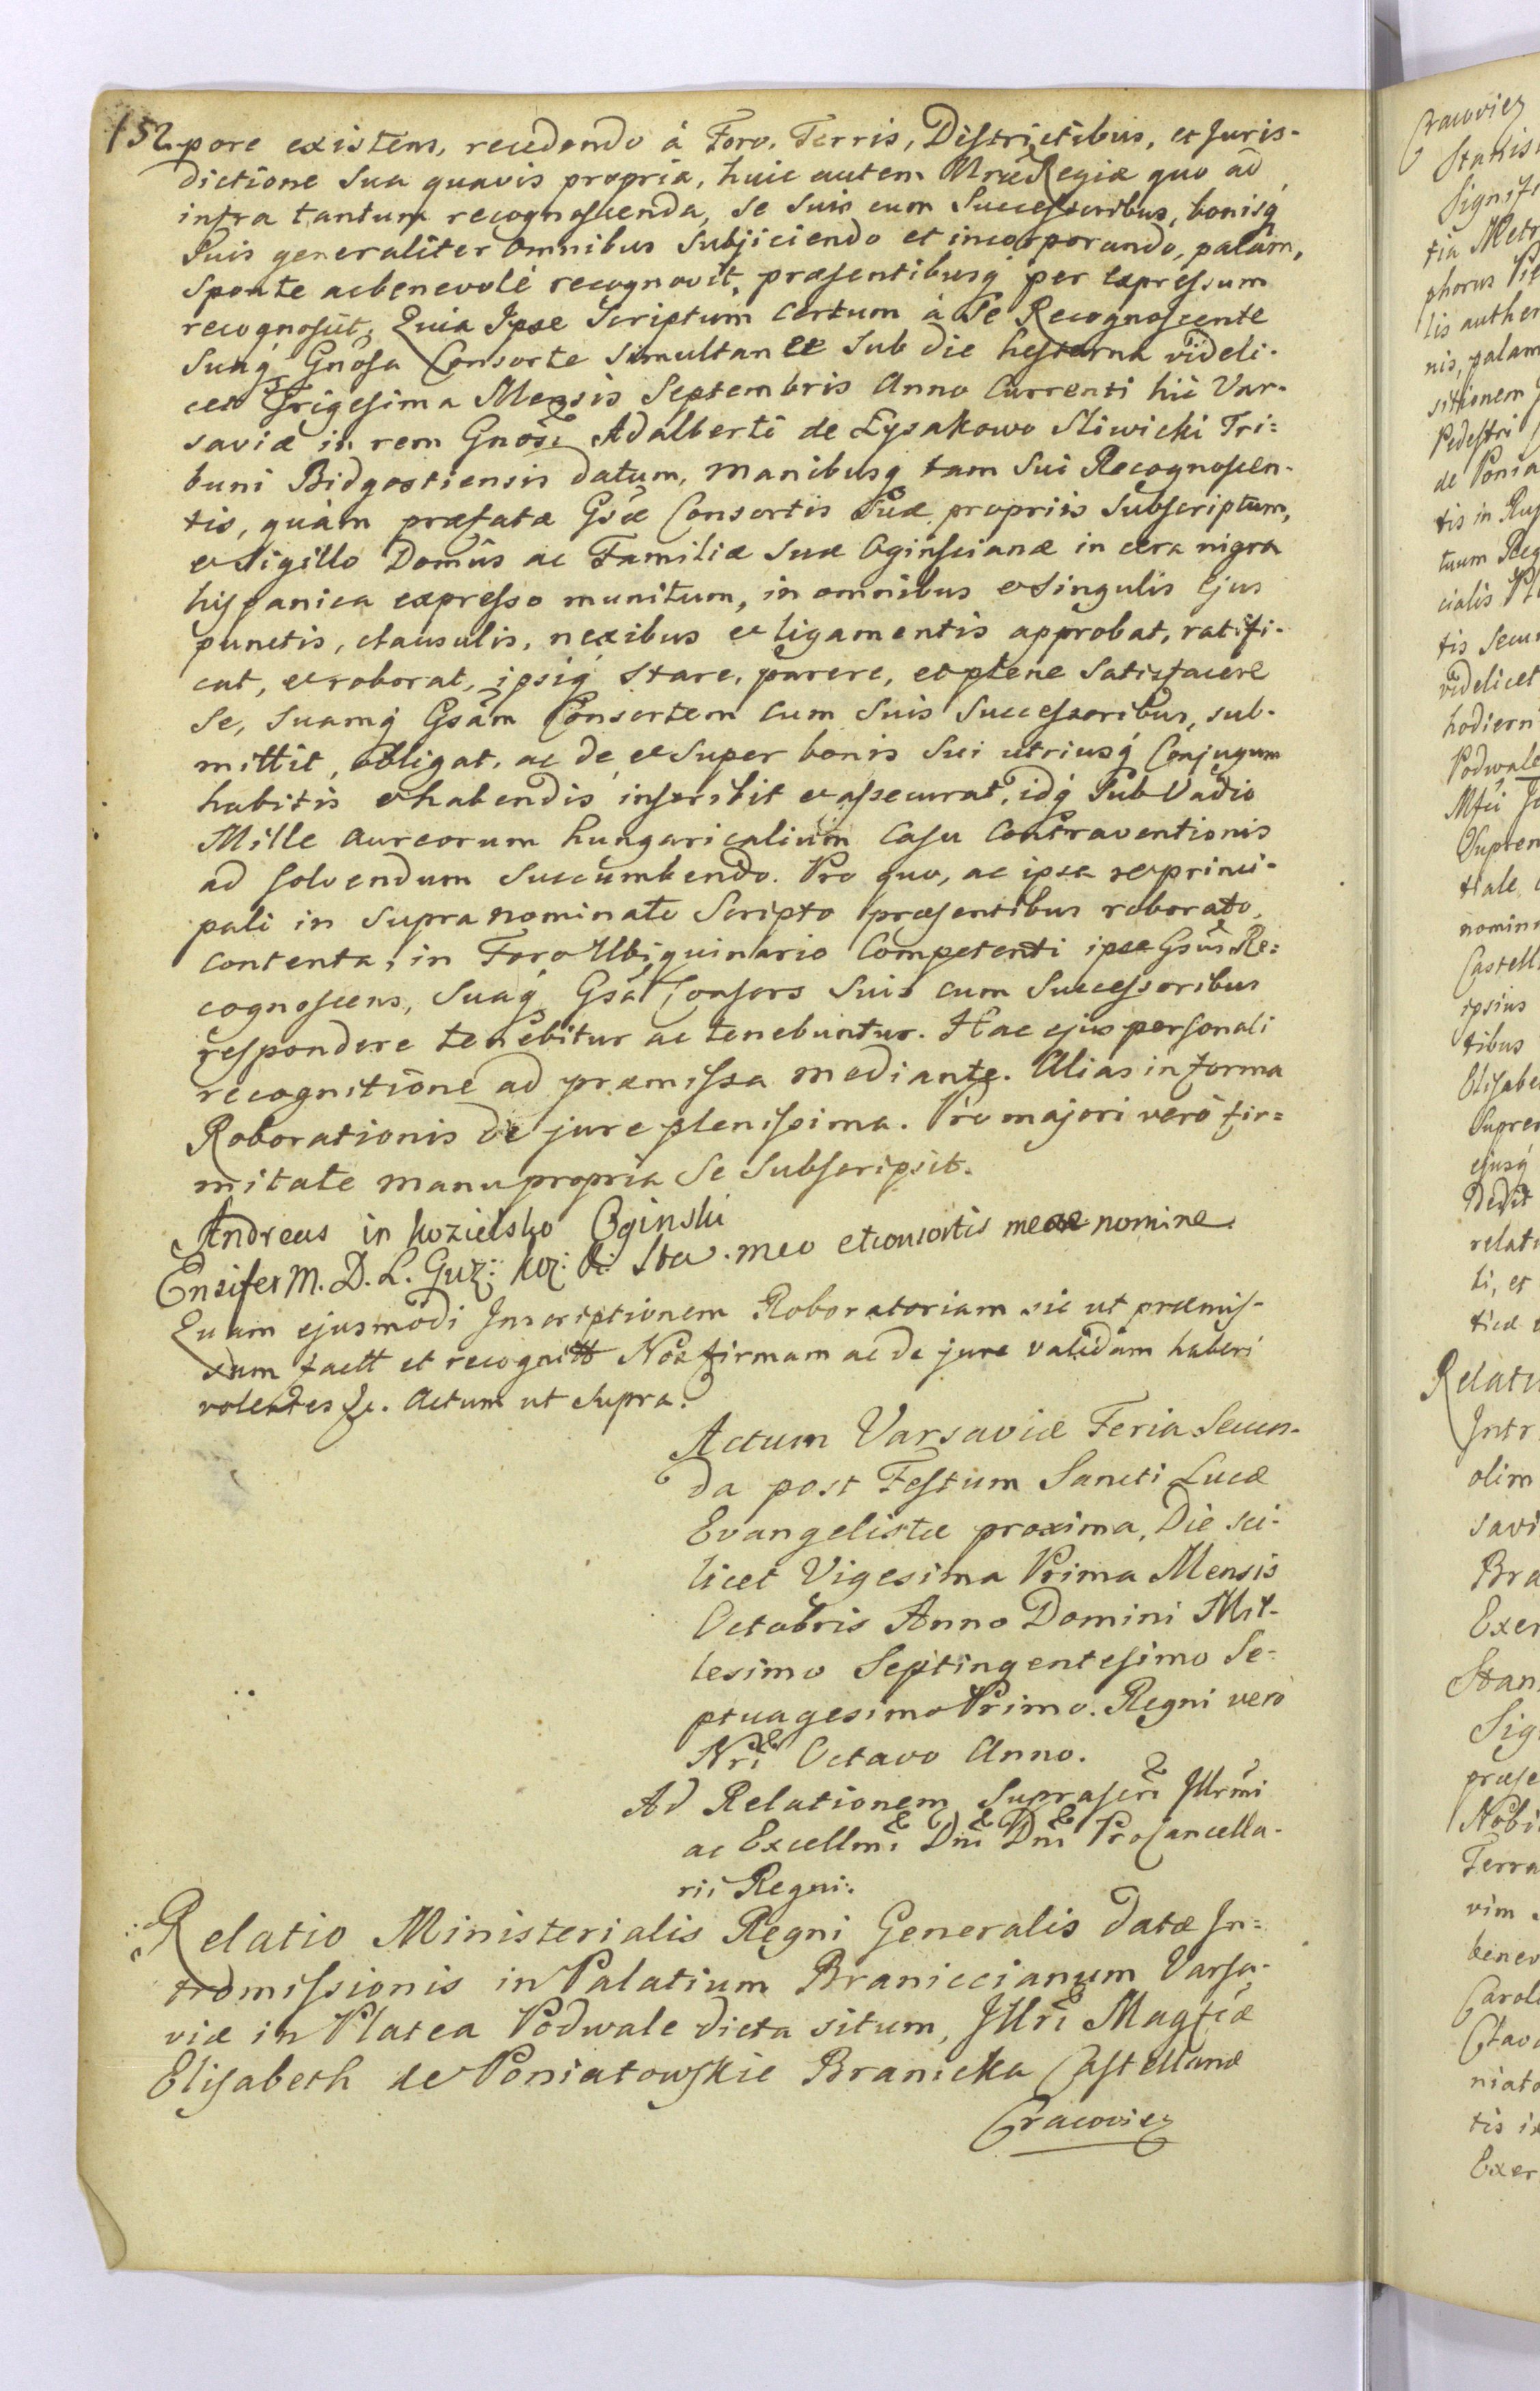 152. pore existens, recedendo à Foro, Terris, Districtibus, et Juris-
dictione Sua quavis propria, huic autem Mrae Regiae quo ad
infra tantum recognoscenda, Se Suis cum Successoribus, bonisq
Suis generaliter omnibus Subjiciendo et incorporando, palam,
Sponte ac benevolè recognovit, praesentibusq per expressum
recognoscit, Quia Ipse Scriptum Certum à Se Recognoscente
Suaq Gnosa Consorte Simultanee Sub die hesterna videli-
cet Trigesima Mensis Septembris Anno Currenti hic Var-
saviae in rem Gnosi Adalberti de Lysakowo Sliwicki Tri=
buni Bidgostiensis datum, manibusq tam Sui Recognoscen-
tis, quàm praefatae Gsae Consortis Suae propriis Subscriptum,
et Sigillo Domûs ac Familiae Suae Oginscianae in cera nigra
hispanica expresso munitum, in omnibus et Singulis Ejus
punctis, clausulis, nexibus et ligamentis approbat, ratifi-
cat, et roborat, ipsiq Stare, parere, et plene Satisfacere
Se, Suamq Gsam Consortem cum Suis Successoribus, sub-
mittit, obligat, ac de et Super bonis Sui utriusq Conjugum
habitis et habendis inscribit et assecurat, idq Sub Vadio
Mille Aureorum hungaricalium Casu Contraventionis
ad solvendum Succumbendo. Pro quo, ac ipsa re principi-
pali in Supra nominato Scripto praesentibus roborato,
contenta, in Foro Ubiquinario Competenti ipse Gsus Re=
cognoscens, Suaq Gsa Consors Suis cum Successoribus
respondere tenebitur ac tenebuntur. Hac ejus personali
recognitione ad praemissa mediante. Alias in forma
Roborationis de jure plenissima. Pro majori verò fir=
mitate manu propria Se Subscripsit.
Andreas in Kozielsko Oginski
Ensifer M. D. L. Guz: Koz: Sta. meo et consortis meae nomine.
Quam ejusmodi Inscriptionem Roboratoriam sic ut praemis-
sum factt et recognitt Nos firmam ac de jure validam haberi
volentes &c. Actum ut Supra.
Actum Varsaviae Feria Secun-
da post Festum Sancti Lucae
Evangelistae proxima, Die sci-
licet Vigesima Prima Mensis
Octobris Anno Domini Mil-
lesimo Septingentesimo Se-
ptuagesimo Primo. Regni vero
Nri Octavo Anno.
Ad Relationem Suprascri Illrmi
ac Excellmi Dni Dni ProCancella-
rii Regni.
Relatio Ministerialis Regni Generalis datae In=
tromissionis in Palatium Braniccianum Varsa-
viae in Platea Podwale dicta situm, Illri Magficae
Elisabeth de Poniatowskie Branicka Castellanae
Cracovien
Cracovien
Stanis
Signif
tia Metr
phorus
lis authen
nis, palam
sitionem
Pedestri
de Ponia
tis in Rus
tuum Reg
cialis
tis Secun
videlicet
hodiern
Podwale
Mfci
Supren
tiale
nomin
Castell
ipsius
tibus
Elisabe
Suprem
ejusq
Dedit
relati
li, et
ticae
Relatio
Intr
olim
savi
Bra
Exer
Stan
Sig
praese
Nobi
Terra
vim
benev
Carol
Clav
niato
tis i
Exer